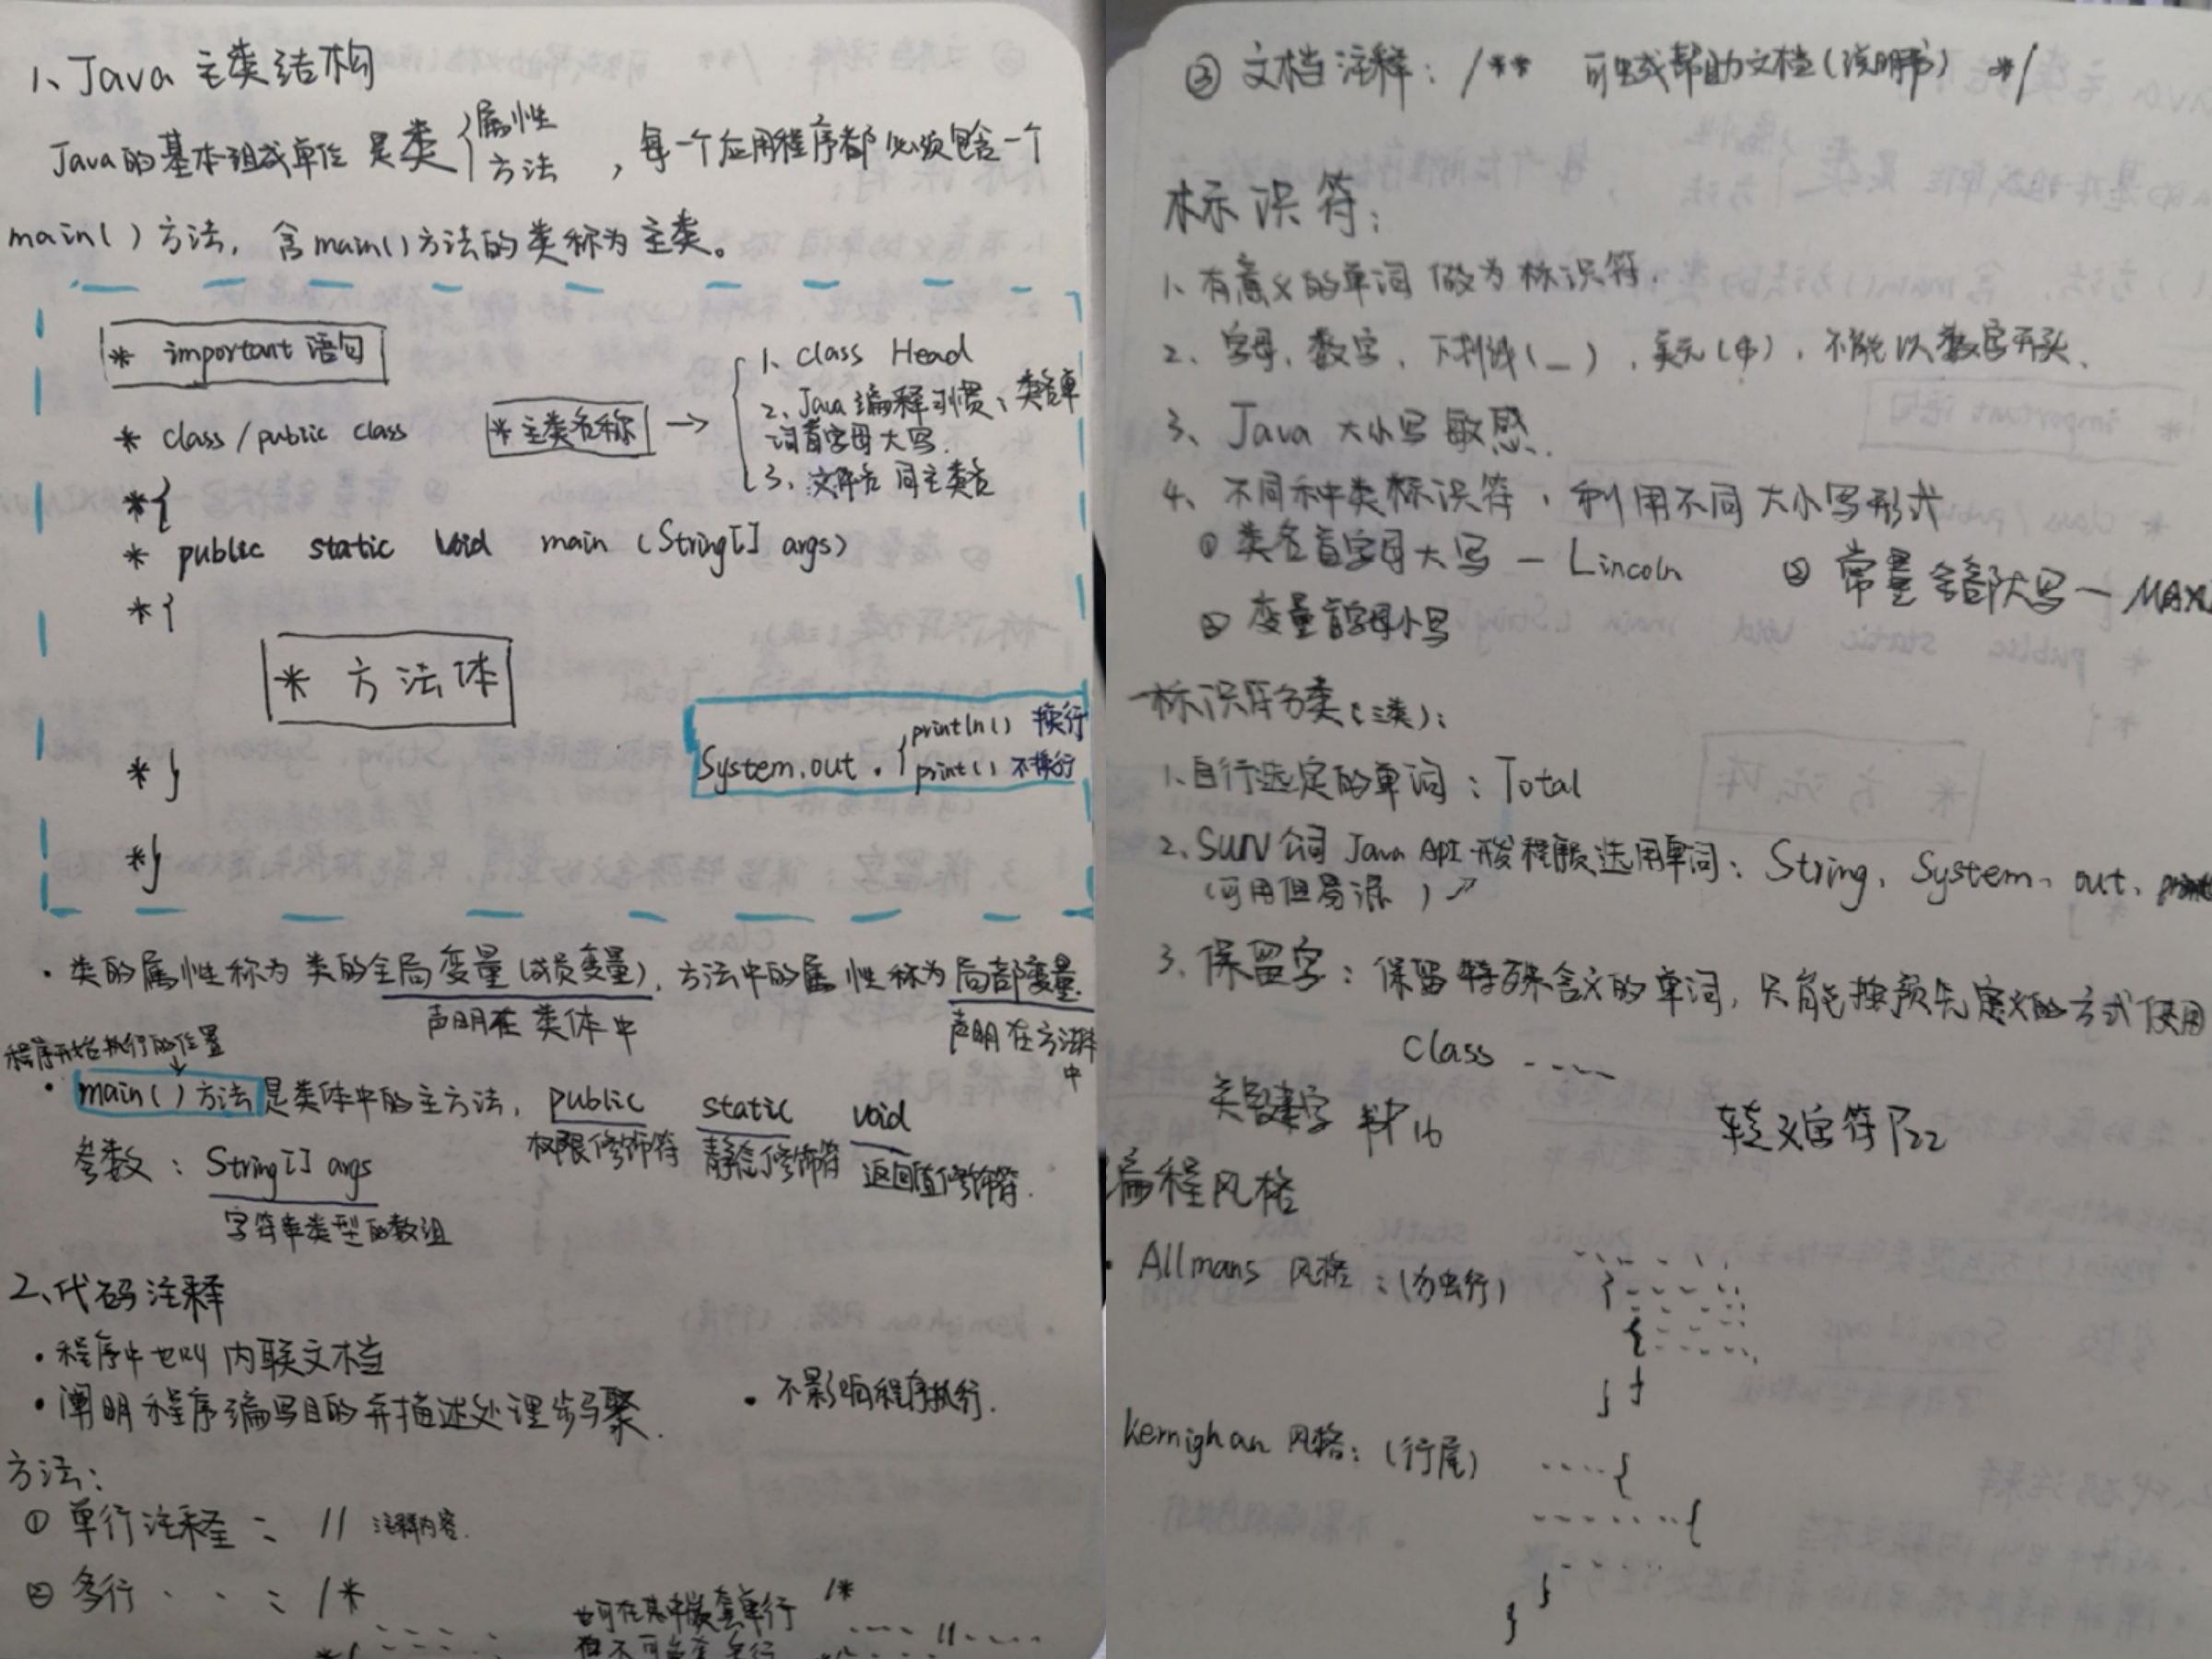 1、Java 主类结构
Java的基本组成单位 是类{属性 方法 ，每一个应用程序都必须包含一个
main()方法，含main()方法的类称为主类。
* important 语句
* class/public class *主类名称 →
1、class Head
2、Java编释习惯、类名单
词首字母大写.
3、文件名同主类名
*{
* public static void main (String[] args)
*{
* 方法体
System.out.{println() 换行
print() 不换行
*}
*}
· 类的属性称为类的全局变量(成员变量)，方法中的属性称为局部变量.
声明在类体中 声明在方法体
中
程序开始执行的位置
↓
· main()方法是类体中的主方法, public static void
权限修饰符 静态修饰符 返回值修饰符.
参数：String[] args
字符串类型的数组
2、代码注释
· 程序中也叫内联文档
· 阐明程序编写目的并描述处理步骤. · 不影响程序执行.
方法：
① 单行注释： // 注释内容.
② 多行 · · ： /*
也可在其中嵌套单行 /*
.... //....
③ 文档注释：/** 可生成帮助文档(说明书) */
标识符：
1、有意义的单词做为标识符.
2、字母、数字、下划线(_)、美元($)、不能以数字开头、
3、Java 大小写敏感.
4、不同种类标识符，利用不同大小写形式
① 类名首字母大写 — Lincoln ② 常量全部大写 — MAX
③ 变量首字母小写
标识符分类(三类)：
1、自行选定的单词：Total
2、SUN公司 Java API 开发程序员选用单词：String、System、out、
(可用但易误)↗
3、保留字：保留特殊含义的单词，只能按预先定义的方式使用
Class ....
关键字 P16 转义字符P22
编程风格
· Allmans 风格：(独行)
{
{
}
}
Kernighan 风格：(行尾)
....{
.......{
}
}